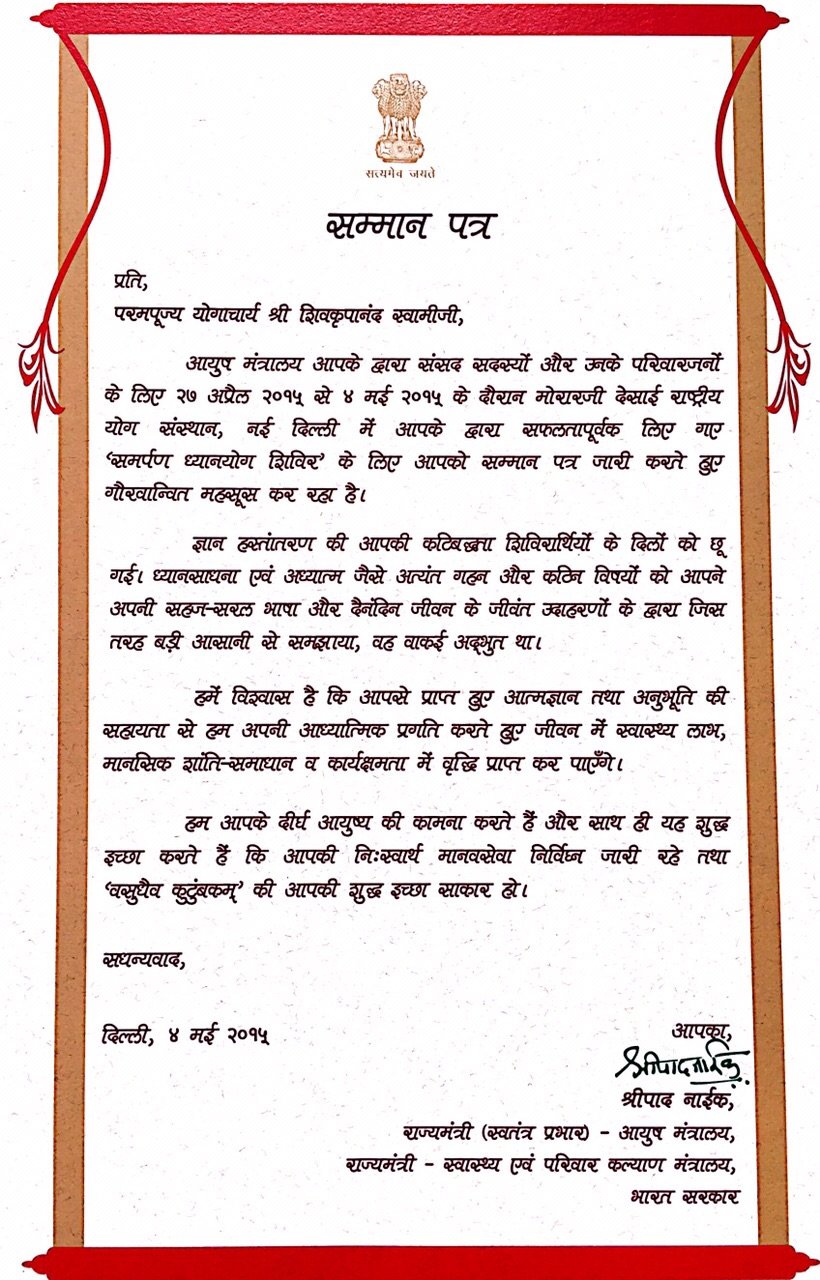 सत्यमेव जयते
सम्मान पत्र
प्रति,
परमपूज्य योगाचार्य श्री शिवकृपानंद स्वामीजी,
आयुष मंत्रालय आपके द्वारा संसद सदस्यों और उनके परिवारजनों
के लिए २७ अप्रैल २०१५ से ४ मई २०१५ के दौरान मोरारजी देसाई राष्ट्रीय
योग संस्थान, नई दिल्ली में आपके द्वारा सफलतापूर्वक लिए गए
‘समर्पण ध्यानयोग शिविर’ के लिए आपको सम्मान पत्र जारी करते हुए
गौरवान्वित महसूस कर रहा है।
ज्ञान हस्तांतरण की आपकी कटिबद्धता शिविरार्थियों के दिलों को छू
गई। ध्यानसाधना एवं अध्यात्म जैसे अत्यंत गहन और कठिन विषयों को आपने
अपनी सहज-सरल भाषा और दैनंदिन जीवन के जीवंत उदाहरणों के द्वारा जिस
तरह बड़ी आसानी से समझाया, वह वाकई अद्‌भुत था।
हमें विश्वास है कि आपसे प्राप्त हुए आत्मज्ञान तथा अनुभूति की
सहायता से हम अपनी आध्यात्मिक प्रगति करते हुए जीवन में स्वास्थ्य लाभ,
मानसिक शांति-समाधान व कार्यक्षमता में वृद्धि प्राप्त कर पाएँगे।
हम आपके दीर्घ आयुष्य की कामना करते हैं और साथ ही यह शुद्ध
इच्छा करते हैं कि आपकी निःस्वार्थ मानवसेवा निर्विघ्न जारी रहे तथा
‘वसुधैव कुटुंबकम्’ की आपकी शुद्ध इच्छा साकार हो।
सधन्यवाद,
दिल्ली, ४ मई २०१५
आपका,
श्रीपाद नाईक
श्रीपाद नाईक,
राज्यमंत्री (स्वतंत्र प्रभार) - आयुष मंत्रालय,
राज्यमंत्री - स्वास्थ्य एवं परिवार कल्याण मंत्रालय,
भारत सरकार